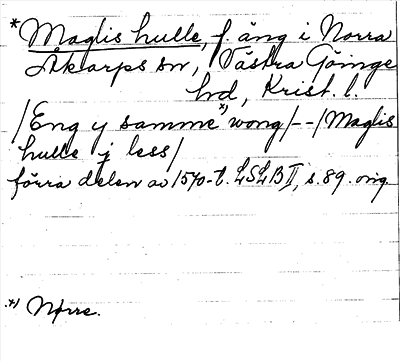 *Maglis hulle, f. äng i Norra
Åkarps sn, Västra Göinge
hd, Krist. l.
/Eng y samme *) wong/--/Maglis
hulle j less/
förra delen av 1570-t. LSLB II, s. 89. orig.
*) Nørre.